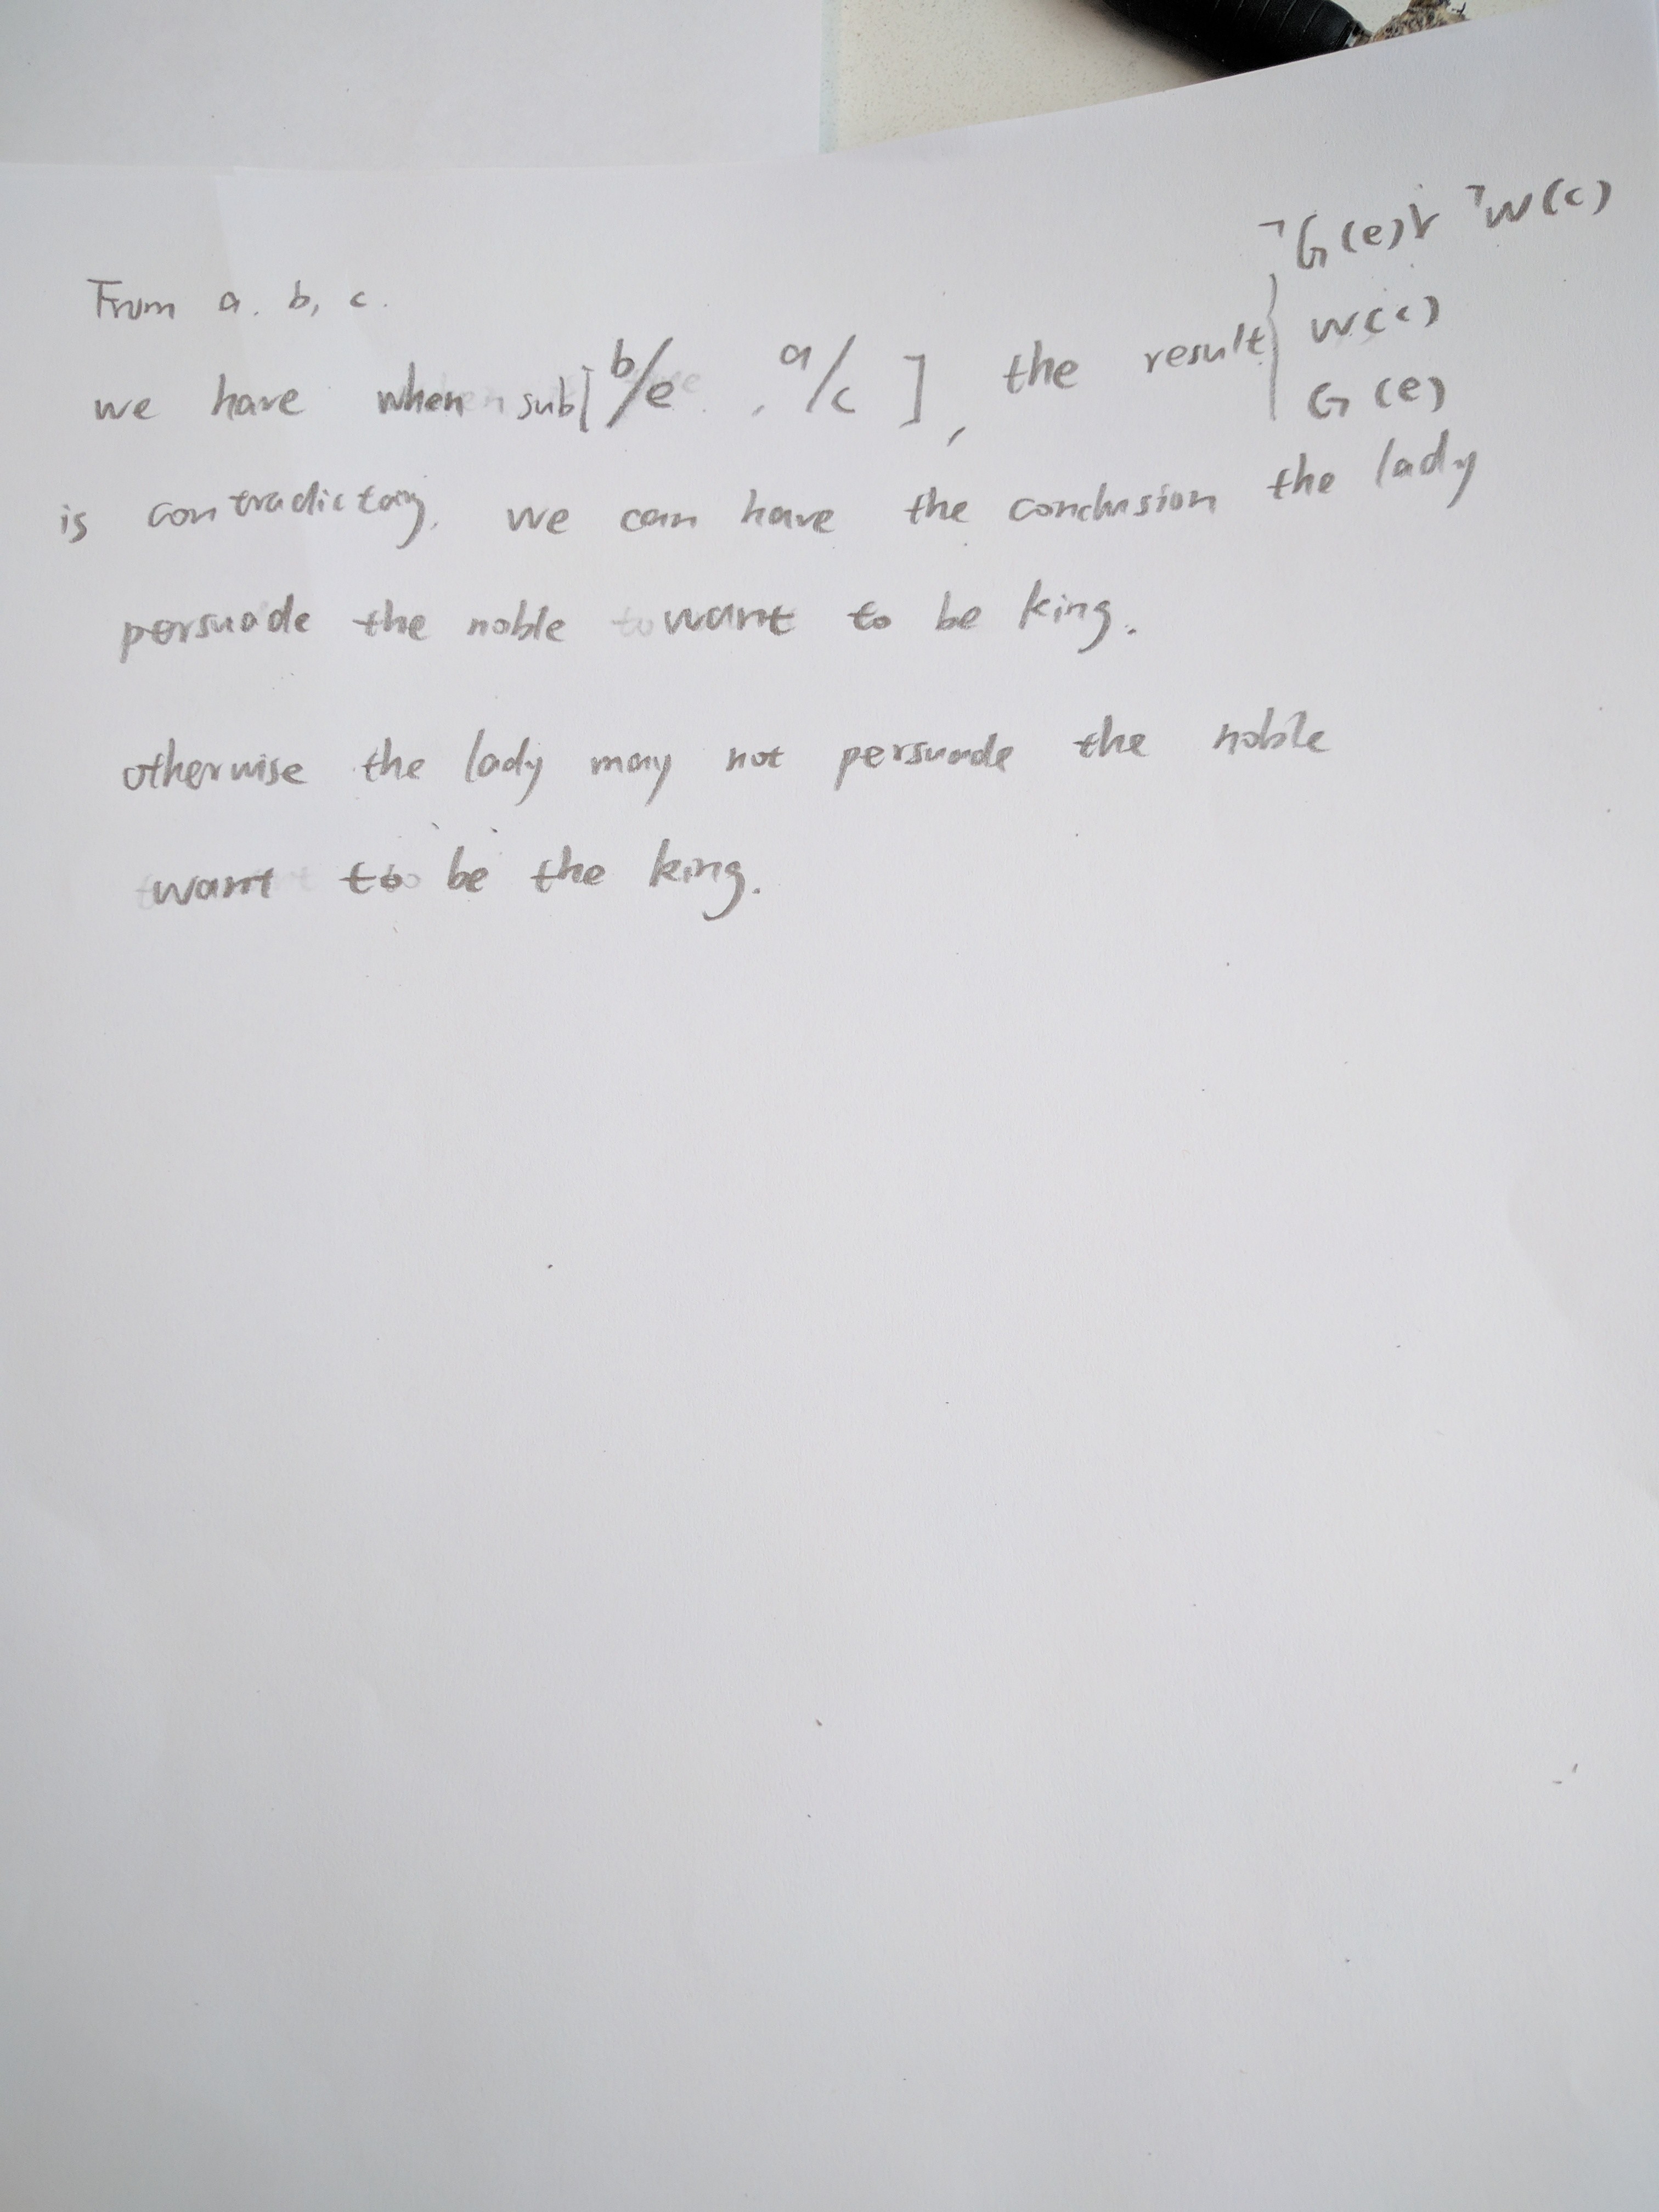 From a. b, c.
¬G(e) ∨ ¬W(c)
we have when sub[b/e, a/c], the result { W(c)
G(e)
is contradictory. we can have the conclusion the lady
persuade the noble want to be king.
otherwise the lady may not persuade the noble
want to be the king.